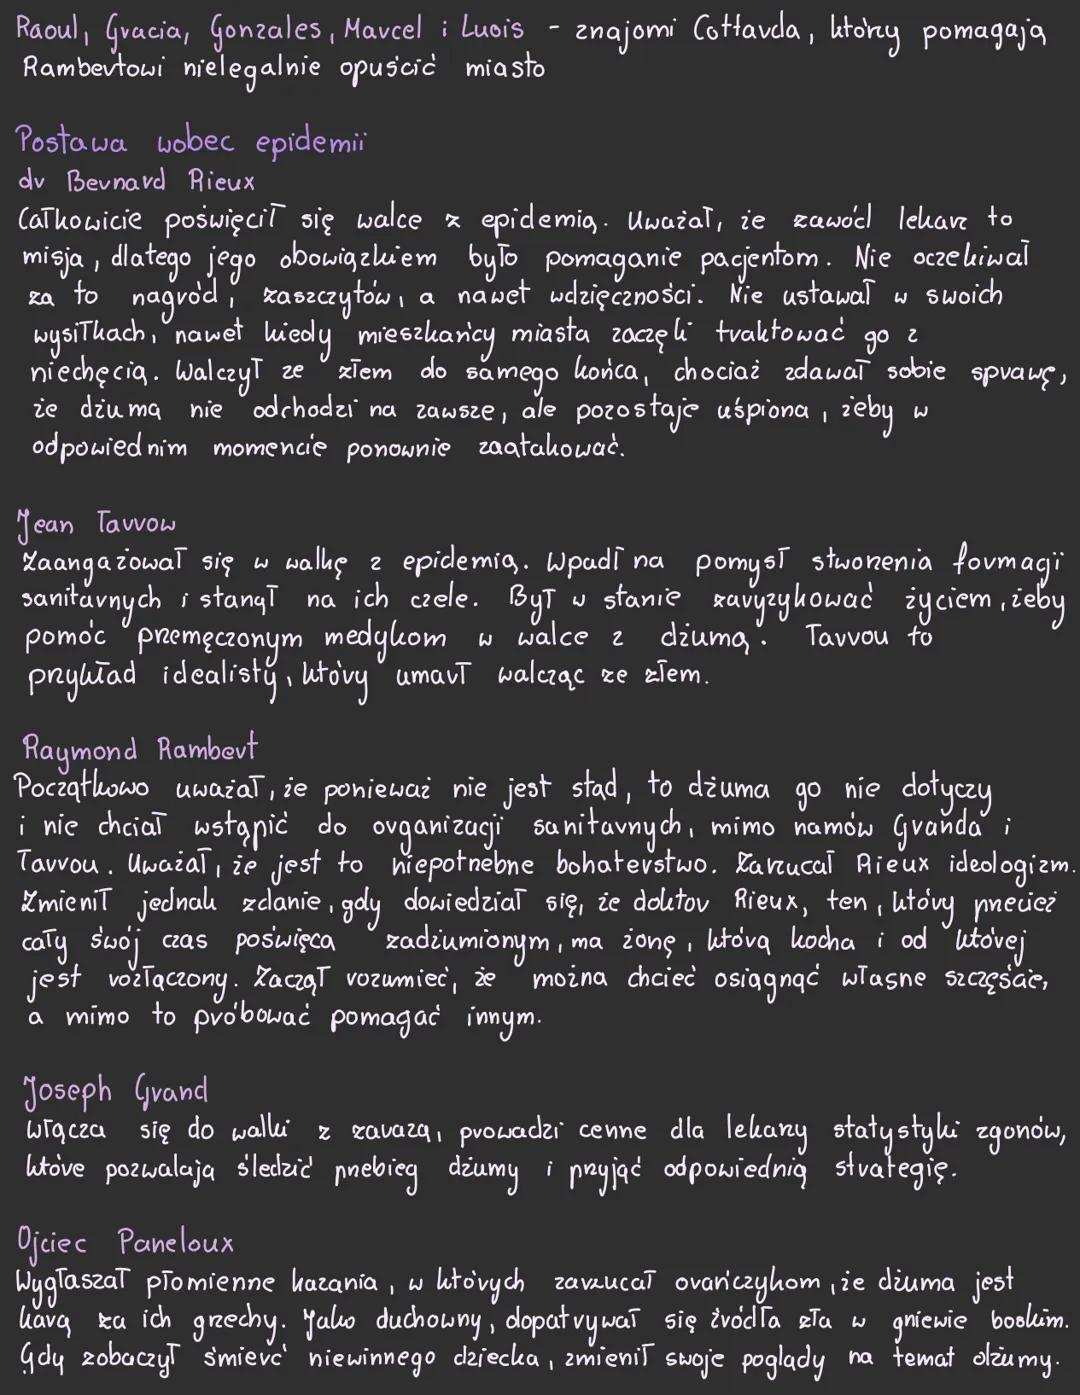 Raoul, Gracia, Gonzales, Marcel i Luois - znajomi Cottarda, którzy pomagają
Rambertowi nielegalnie opuścić miasto
Postawa wobec epidemii
dr Bernard Rieux
Całkowicie poświęcił się walce z epidemią. Uważał, że zawód lekarz to
misja, dlatego jego obowiązkiem było pomaganie pacjentom. Nie oczekiwał
za to nagród, zaszczytów, a nawet wdzięczności. Nie ustawał w swoich
wysiłkach, nawet kiedy mieszkańcy miasta zaczęli traktować go z
niechęcią. Walczył ze złem do samego końca, chociaż zdawał sobie sprawę,
że dżuma nie odchodzi na zawsze, ale pozostaje uśpiona, żeby w
odpowiednim momencie ponownie zaatakować.
Jean Tarrow
Zaangażował się w walkę z epidemią. Wpadł na pomysł stworzenia formacji
sanitarnych i stanął na ich czele. Był w stanie zaryzykować życiem, żeby
pomóc przemęczonym medykom w walce z dżumą. Tarrou to
przykład idealisty, który umarł walcząc ze złem.
Raymond Rambert
Początkowo uważał, że ponieważ nie jest stąd, to dżuma go nie dotyczy
i nie chciał wstąpić do organizacji sanitarnych, mimo namów Granda i
Tarrou. Uważał, że jest to niepotrzebne bohaterstwo. Zarzucał Rieux ideologizm.
Zmienił jednak zdanie, gdy dowiedział się, że doktor Rieux, ten, który przecież
cały swój czas poświęca zadżumionym, ma żonę, którą kocha i od której
jest rozłączony. Zaczął rozumieć, że można chcieć osiągnąć własne szczęście,
a mimo to próbować pomagać innym.
Joseph Grand
Włącza się do walki z zarazą, prowadzi cenne dla lekarzy statystyki zgonów,
które pozwalają śledzić przebieg dżumy i przyjąć odpowiednią strategię.
Ojciec Paneloux
Wygłaszał płomienne kazania, w których zarzucał orańczykom, że dżuma jest
karą za ich grzechy. Jako duchowny, dopatrywał się źródła zła w gniewie boskim.
Gdy zobaczył śmierć niewinnego dziecka, zmienił swoje poglądy na temat dżumy.